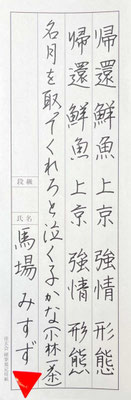 帰還 鮮魚 上京 強情 形態
帰還 鮮魚 上京 強情 形態
名月を取てくれろと泣く子かな(小林一茶)
段級
氏名
馬場みすず